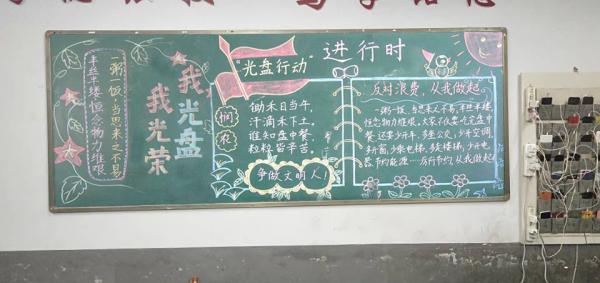 一粥一饭,当思来之不易
半丝半缕恒念物力维艰
我光盘
我光荣
"光盘行动"进行时
悯农
锄禾日当午,
汗滴禾下土。
谁知盘中餐,
粒粒皆辛苦。
争做文明人!
反对浪费,从我做起
一粥一饭,当思来之不易,半丝半缕,
恒念物力维艰,大家不仅要吃完盘中
餐,还要少开车,多坐公交,少开空调,
多开窗,少乘电梯,多走楼梯,少用电
器节约能源……厉行节约,从我做起